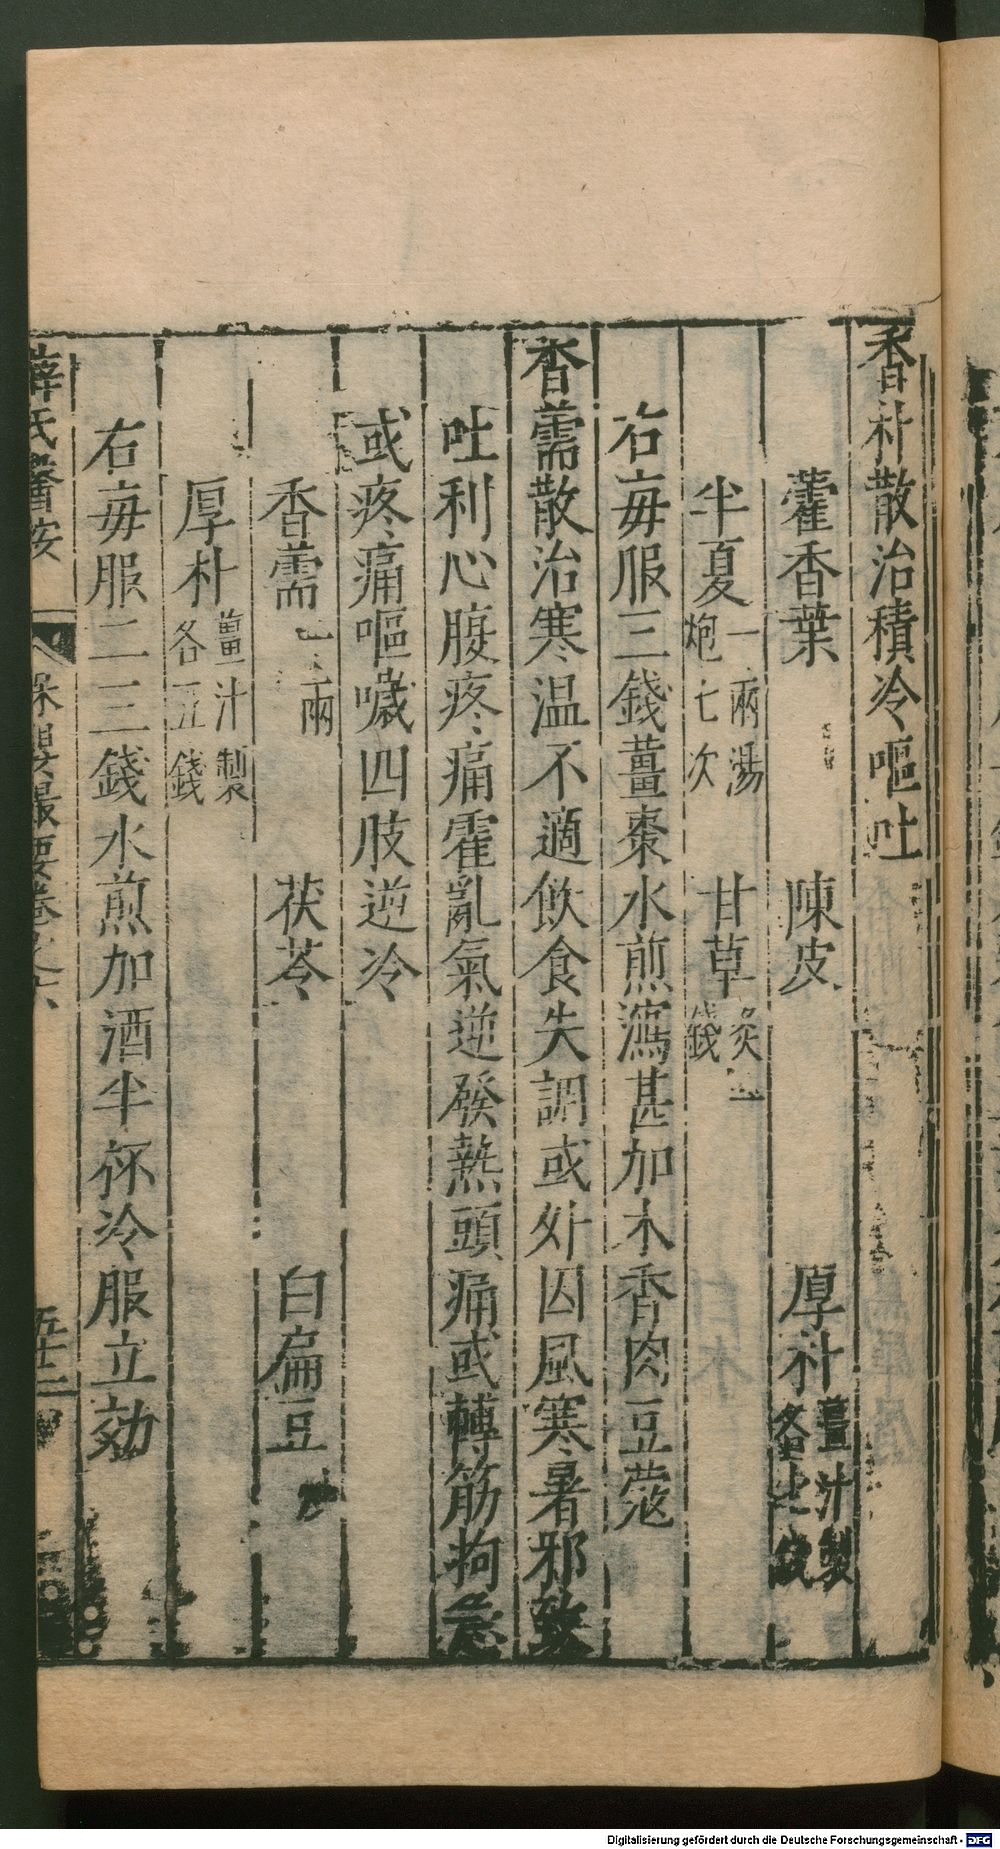 香朴散治積冷嘔吐
藿香葉 陳皮 厚朴薑汁製各七錢
半夏一兩湯炮七次 甘草炙五錢
右每服三錢薑棗水煎瀉甚加木香肉豆蔻
香薷散治寒温不適飲食失調或外因風寒暑邪致
吐利心腹疼痛霍亂氣逆發熱頭痛或轉筋拘急
或疼痛嘔噦四肢逆冷
香薷二兩 茯苓 白扁豆
厚朴薑汁製各五錢
右每服二三錢水煎加酒半杯冷服立効
薛氏醫按 保嬰撮要卷之六 五十二
Digitalisierung gefördert durch die Deutsche Forschungsgemeinschaft - DFG